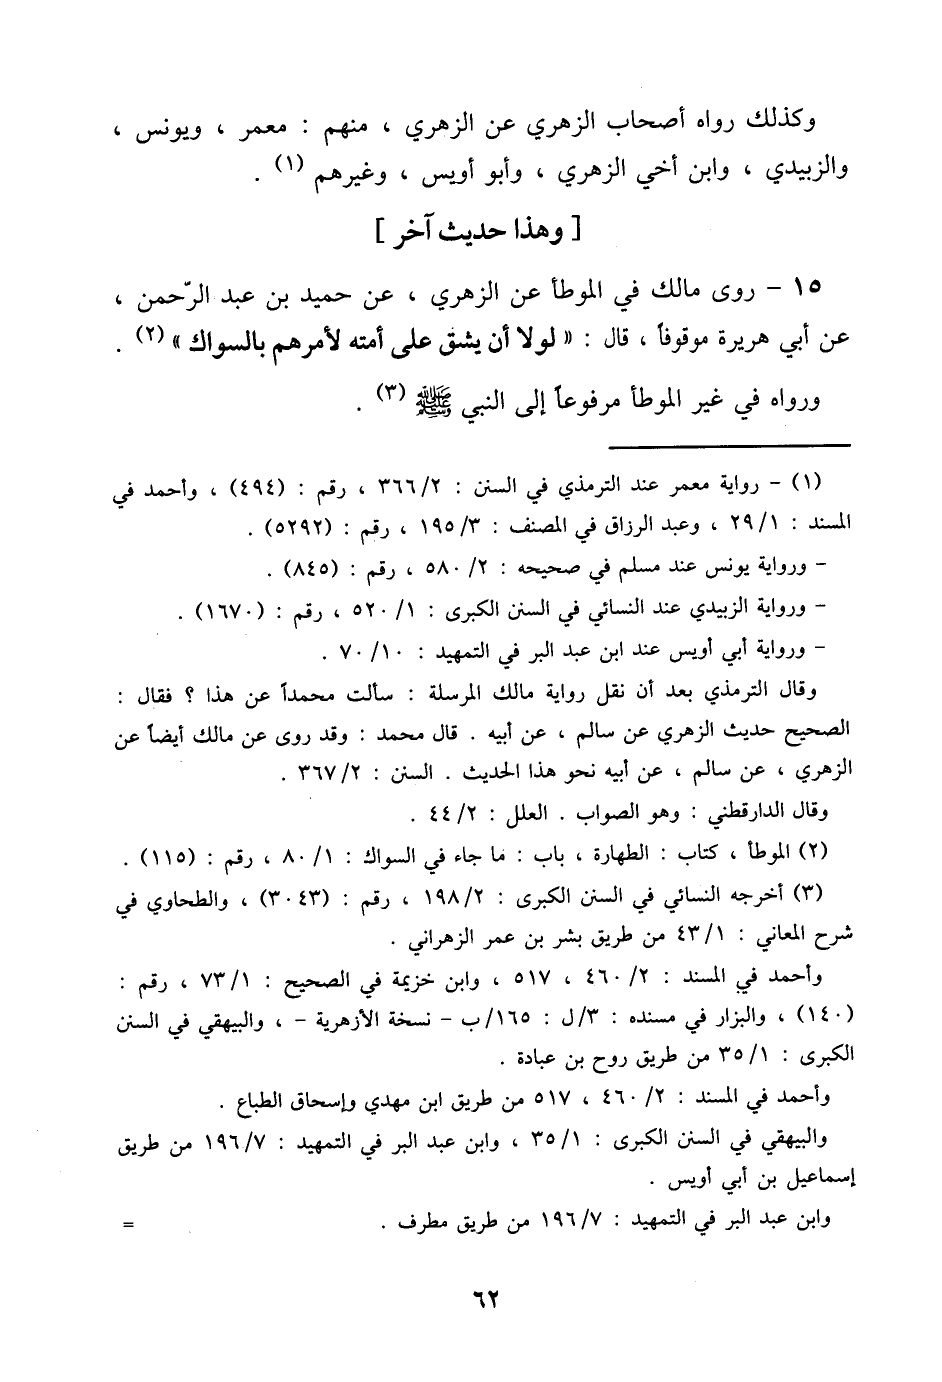 وكذلك رواه أصحاب الزهري عن الزهري ، منهم : معمر ، ويونس ،
والزبيدي ، وابن أخي الزهري ، وأبو أويس ، وغيرهم (١) .
[ وهذا حديث آخر ]
١٥ – روى مالك في الموطأ عن الزهري ، عن حميد بن عبد الرّحمن ،
عن أبي هريرة موقوفاً ، قال : « لولا أن يشق على أمته لأمرهم بالسواك » (٢) .
ورواه في غير الموطأ مرفوعاً إلى النبي ﷺ (٣) .
(١) – رواية معمر عند الترمذي في السنن : ٣٦٦/٢ ، رقم : (٤٩٤) ، وأحمد في
المسند : ٢٩/١ ، وعبد الرزاق في المصنف : ١٩٥/٣ ، رقم : (٥٢٩٢) .
– ورواية يونس عند مسلم في صحيحه : ٥٨٠/٢ ، رقم : (٨٤٥) .
– ورواية الزبيدي عند النسائي في السنن الكبرى : ٥٢٠/١ ، رقم : (١٦٧٠) .
– ورواية أبي أويس عند ابن عبد البر في التمهيد : ٧٠/١٠ .
وقال الترمذي بعد أن نقل رواية مالك المرسلة : سألت محمداً عن هذا ؟ فقال :
الصحيح حديث الزهري عن سالم ، عن أبيه . قال محمد : وقد روى عن مالك أيضاً عن
الزهري ، عن سالم ، عن أبيه نحو هذا الحديث . السنن : ٣٦٧/٢ .
وقال الدارقطني : وهو الصواب . العلل : ٤٤/٢ .
(٢) الموطأ ، كتاب : الطهارة ، باب : ما جاء في السواك : ٨٠/١ ، رقم : (١١٥) .
(٣) أخرجه النسائي في السنن الكبرى : ١٩٨/٢ ، رقم : (٣٠٤٣) ، والطحاوي في
شرح المعاني : ٤٣/١ من طريق بشر بن عمر الزهراني .
وأحمد في المسند : ٤٦٠/٢ ، ٥١٧ ، وابن خزيمة في الصحيح : ٧٣/١ ، رقم :
(١٤٠) ، والبزار في مسنده : ٣/ل : ١٦٥/ب – نسخة الأزهرية – ، والبيهقي في السنن
الكبرى : ٣٥/١ من طريق روح بن عبادة .
وأحمد في المسند : ٤٦٠/٢ ، ٥١٧ من طريق ابن مهدي وإسحاق الطباع .
والبيهقي في السنن الكبرى : ٣٥/١ ، وابن عبد البر في التمهيد : ١٩٦/٧ من طريق
إسماعيل بن أبي أويس .
وابن عبد البر في التمهيد : ١٩٦/٧ من طريق مطرف . =
٦٢